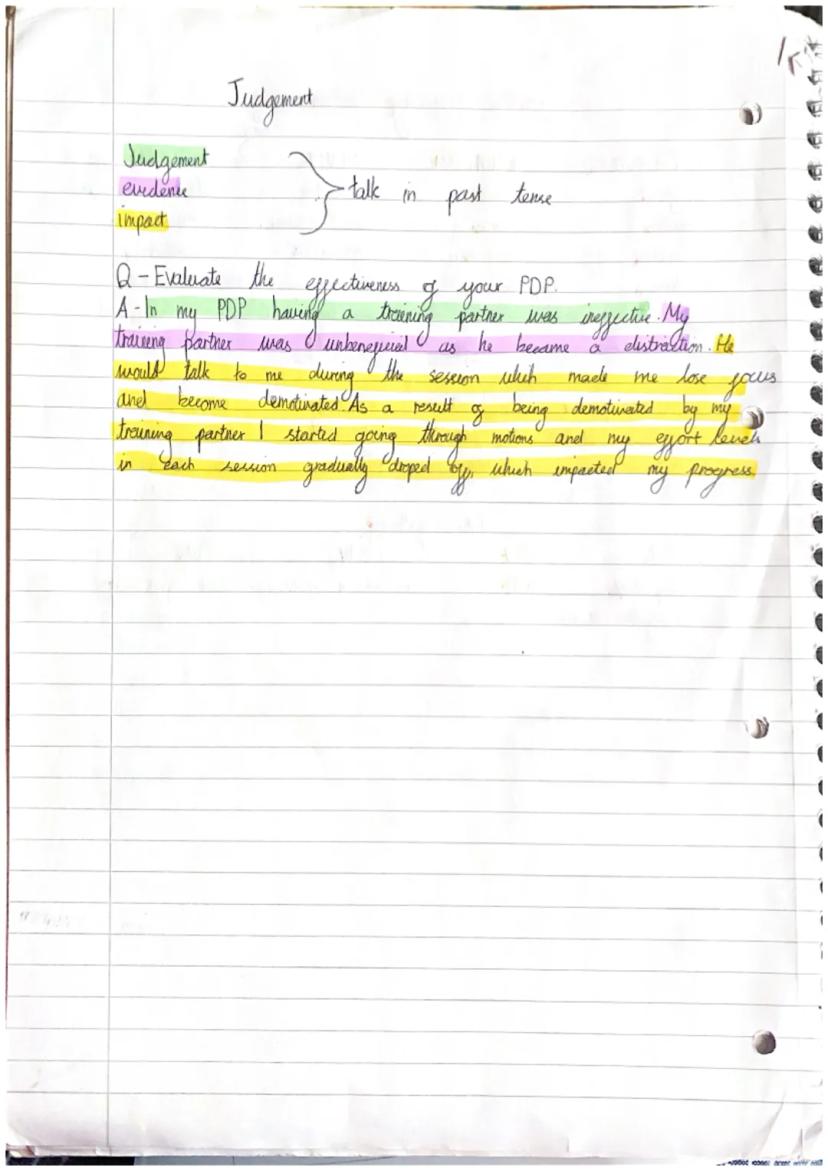 Judgement
Judgement
evidence
impact
talk in past tense
Q - Evaluate the effectiveness of your PDP.
A - In my PDP having a training partner was ineffective. My
training partner was unbeneficial as he became a distraction. He
would talk to me during the session which made me lose focus
and become demotivated. As a result of being demotivated by my
training partner I started going through motions and my effort levels
in each session gradually droped off, which impacted my progress.